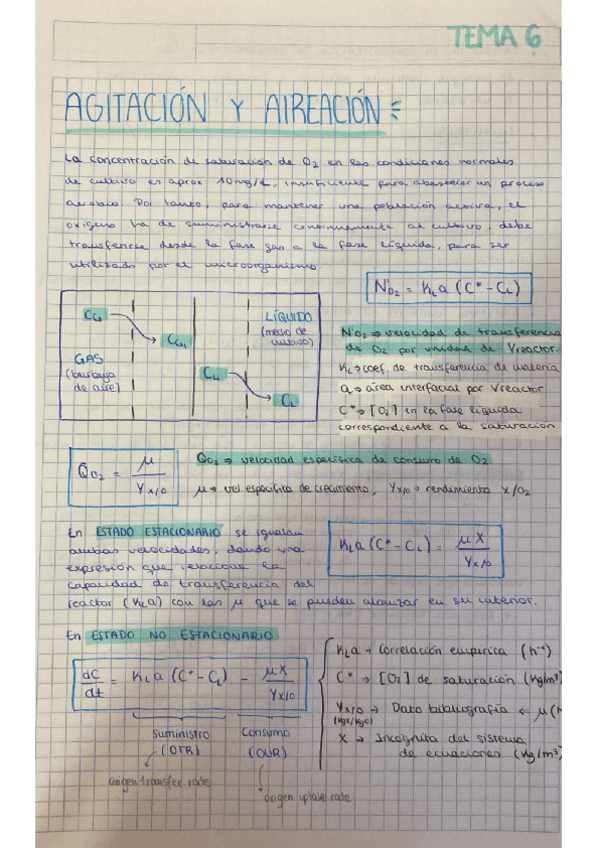 TEMA 6
AGITACIÓN Y AIREACIÓN
La concentración de saturación de O2 en las condiciones normales
de cultivo es aprox 10mg/L, insuficiente para abastecer un proceso
aerobio. Por tanto, para mantener una población activa, el
oxígeno ha de suministrarse continuamente al cultivo, debe
transferirse desde la fase gas a la fase líquida, para ser
utilizado por el microorganismo
NO2 = KLa (C* - CL)
CG
CGi
GAS
(burbuja
de aire)
LÍQUIDO
(medio de
cultivo)
CLi
CL
NO2 → velocidad de transferencia
de O2 por unidad de Vreactor.
KL → coef. de transferencia de materia
a → área interfacial por Vreactor
C* → [O2] en la fase líquida
correspondiente a la saturación
QO2 = μ / Yx/o
QO2 → velocidad específica de consumo de O2
μ → vel específica de crecimiento, Yx/o → rendimiento X/O2
En ESTADO ESTACIONARIO se igualan
ambas velocidades, dando una
expresión que relaciona la
capacidad de transferencia del
reactor (KLa) con las μ que se pueden alcanzar en su interior.
KLa (C* - CL) = μX / Yx/o
En ESTADO NO ESTACIONARIO
dC/dt = KLa (C* - CL) - μX / Yx/o
suministro
(OTR)
Consumo
(OUR)
origen transfer rate
origen uptake rate
KLa → Correlación empírica (h⁻¹)
C* → [O2] de saturación (kg/m³)
Yx/o → Dato bibliografía ← μ (h
(kgx/kgo)
X → Incógnita del sistema
de ecuaciones (kg/m³)